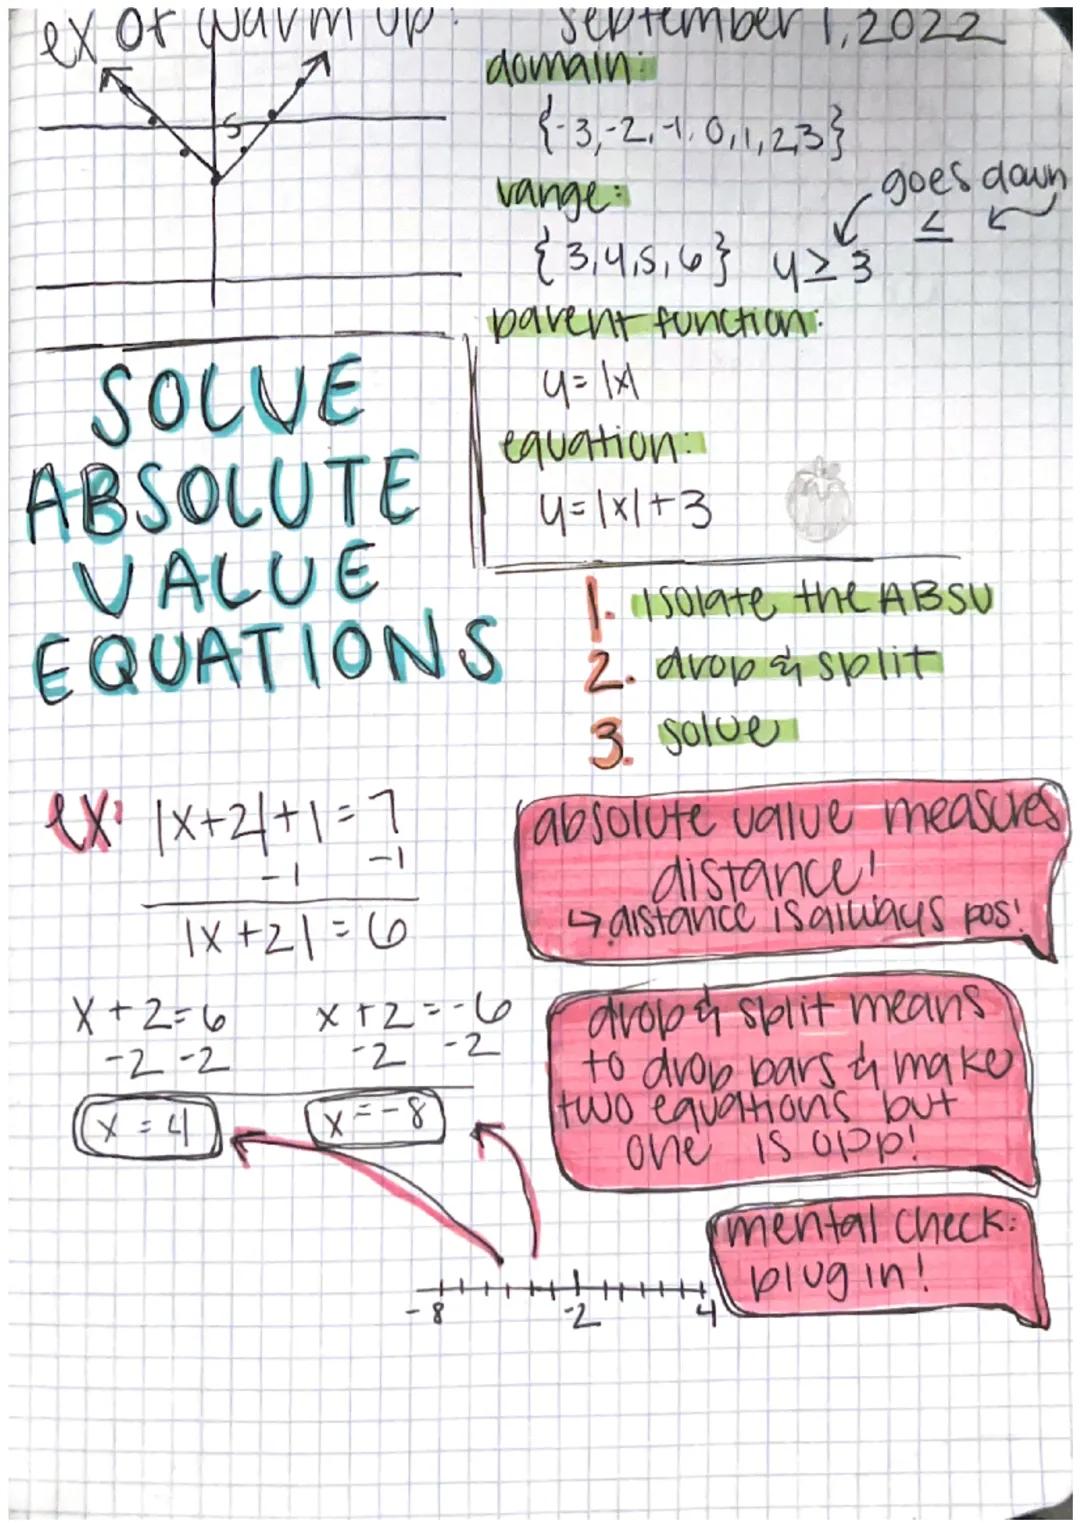 ex of warm up:
september 1, 2022
5
domain:
{-3,-2,-1,0,1,2,3}
range:
{3,4,5,6} y≥3
goes down
≤
parent function:
y=|x|
equation:
y=|x|+3
SOLVE
ABSOLUTE
VALUE
EQUATIONS
1. isolate the ABSV
2. drop & split
3. solve
ex: |x+2|+1=7
-1 -1
|x+2|=6
x+2=6 x+2=-6
-2 -2 -2 -2
x=4 x=-8
absolute value measures
distance!
↳ distance is always pos!
drop & split means
to drop bars & make
two equations but
one is opp!
mental check:
plug in!
-8 -2 4